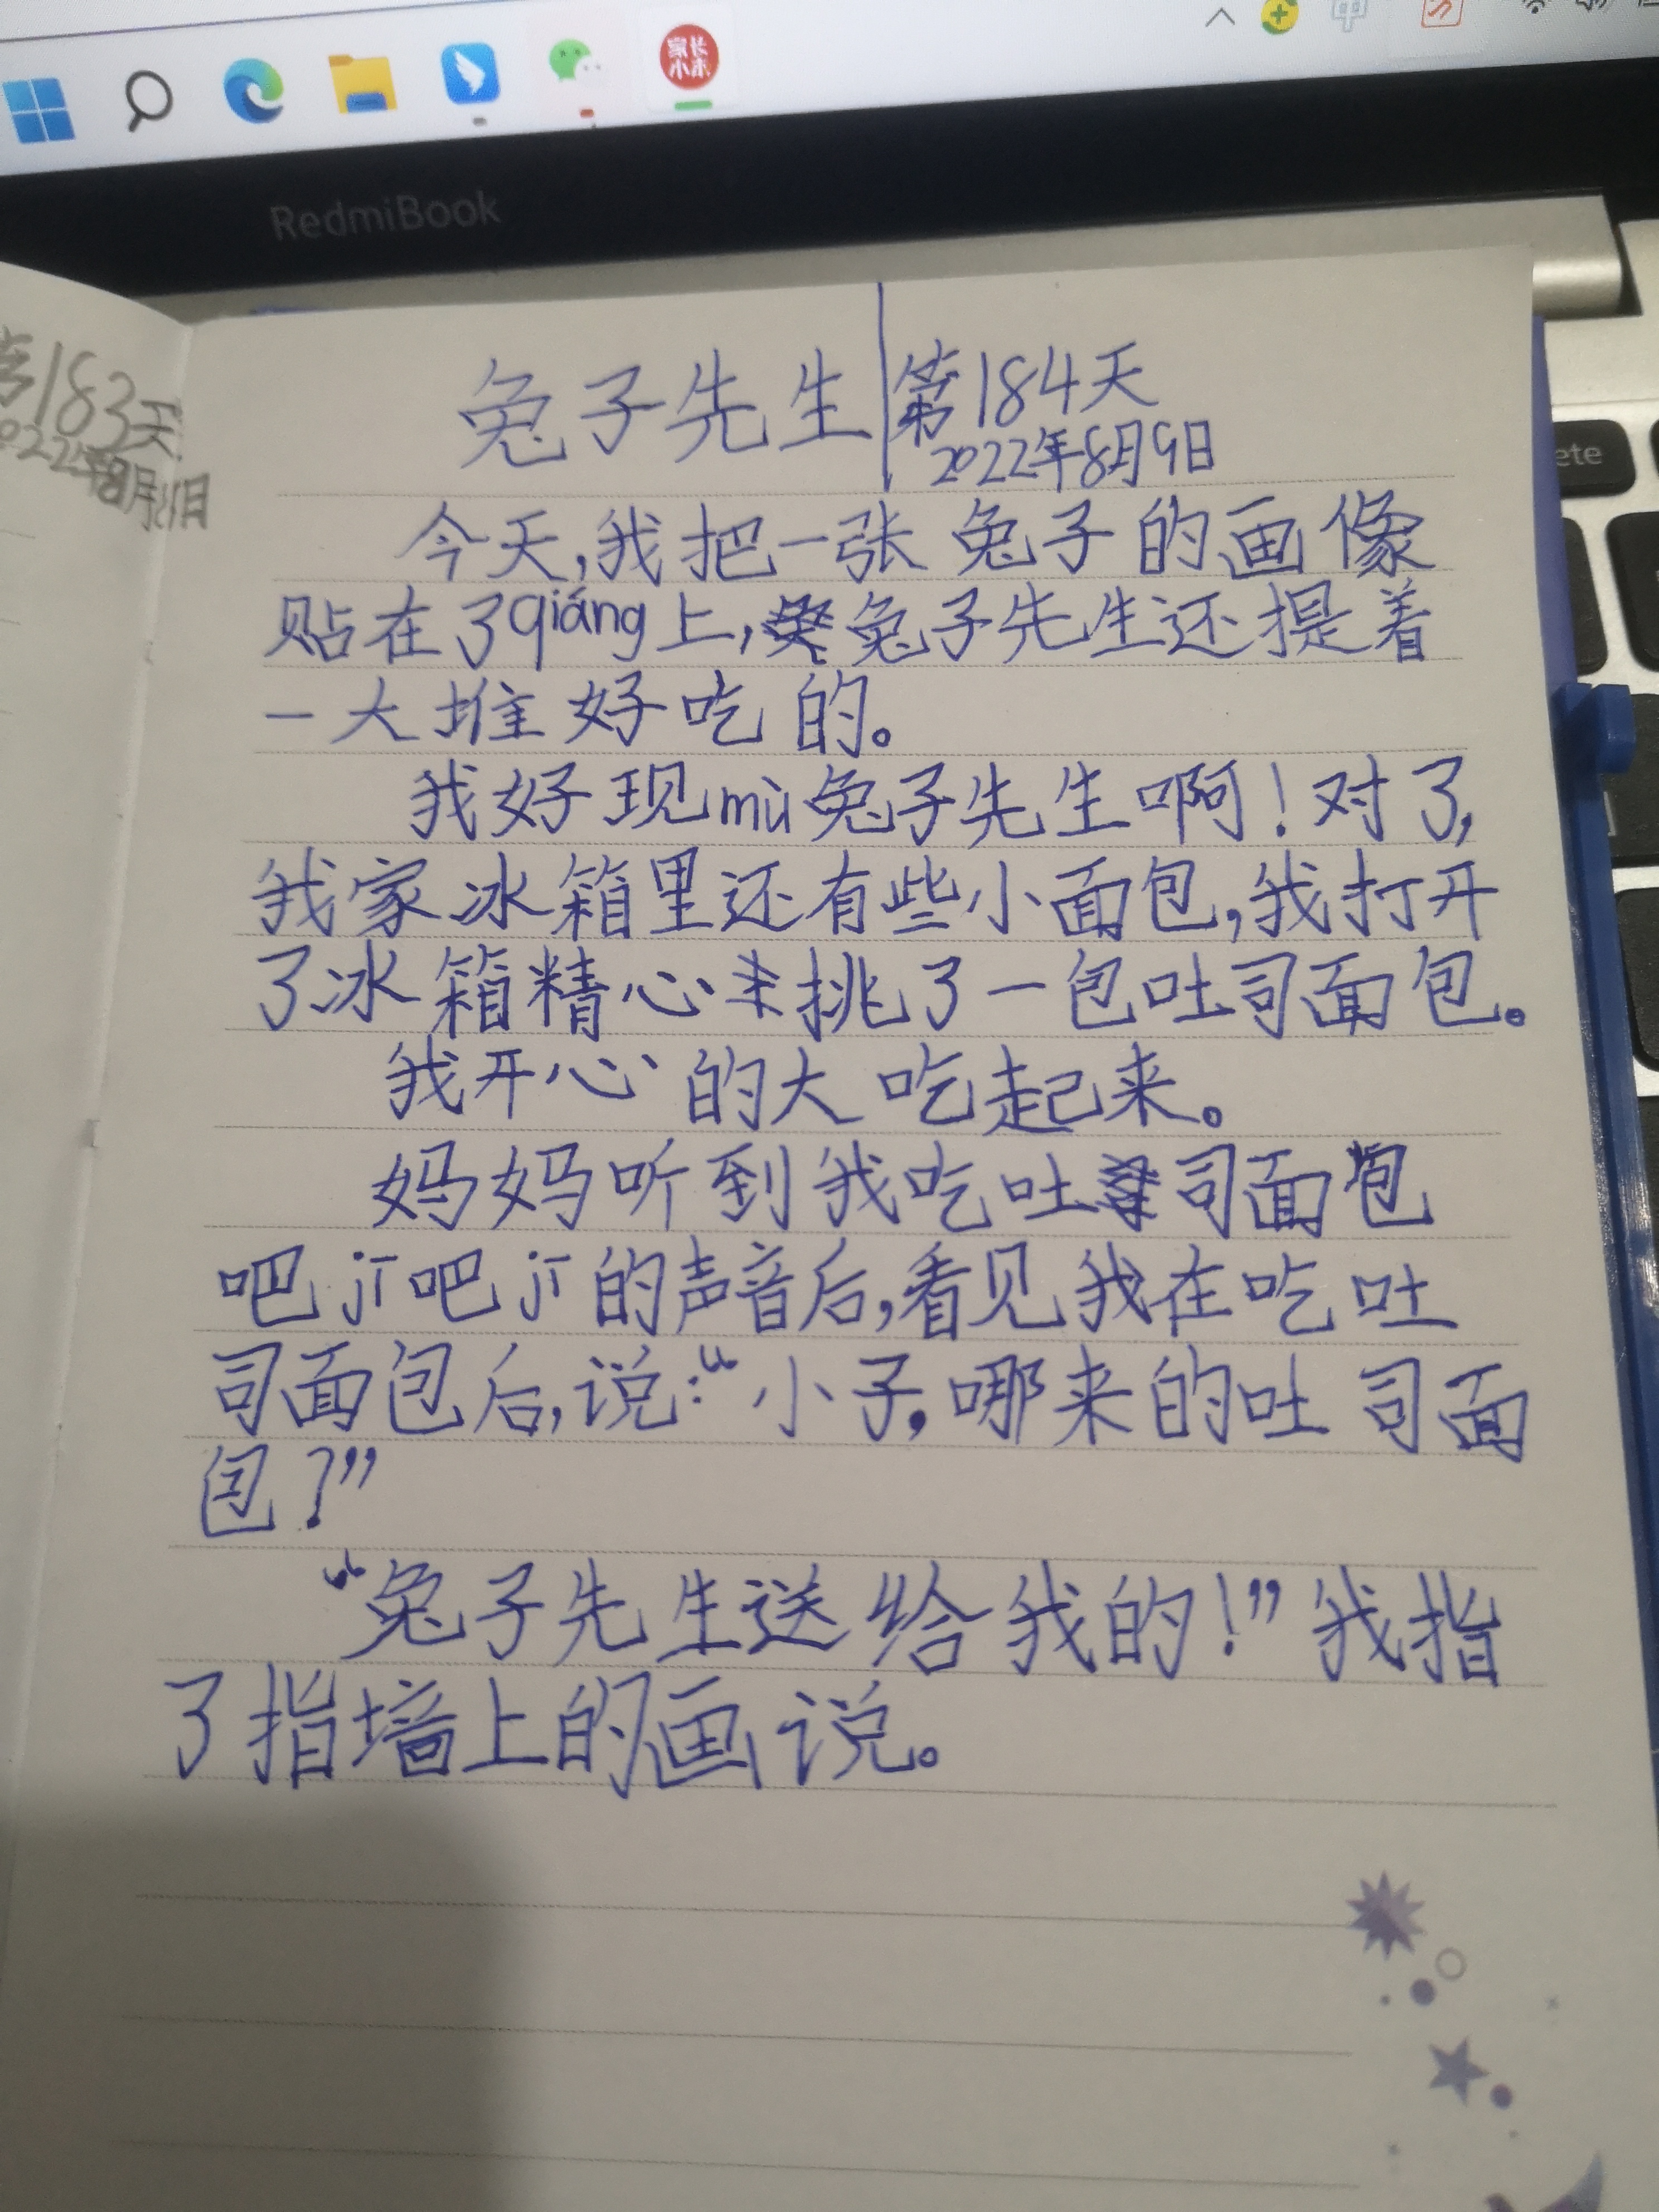 家长
小木
RedmiBook
ete
183天
兔子先生 第184天
2022年8月9日
今天,我把一张兔子的画像
贴在了qiáng上,兔子先生还提着
一大堆好吃的。
我好现mù兔子先生啊!对了,
我家冰箱里还有些小面包,我打开
了冰箱精心挑了一包吐司面包。
我开心的大吃起来。
妈妈听到我吃吐司面包
吧jī吧jī的声音后,看见我在吃吐
司面包后,说:“小子,哪来的吐司面
包?”
“兔子先生送给我的!”我指
了指墙上的画说。